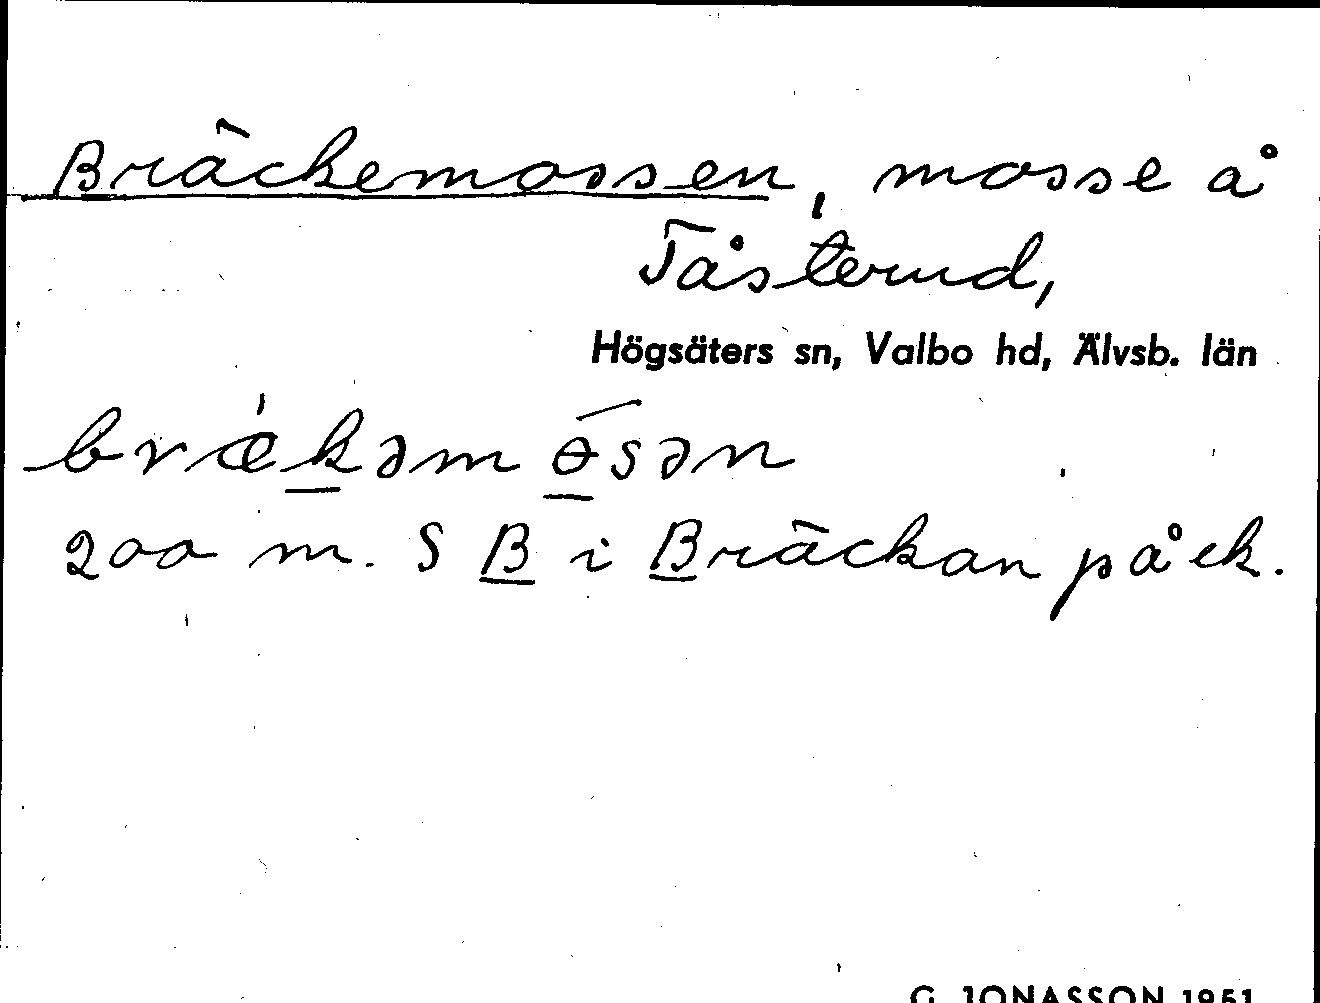 Bräckemossen, mosse å
Tåsterud,
Högsäters sn, Valbo hd, Älvsb. län
bræ̀kəmɵ́sən
200 m. S B i Bräckan på ek.
G. JONASSON 1951